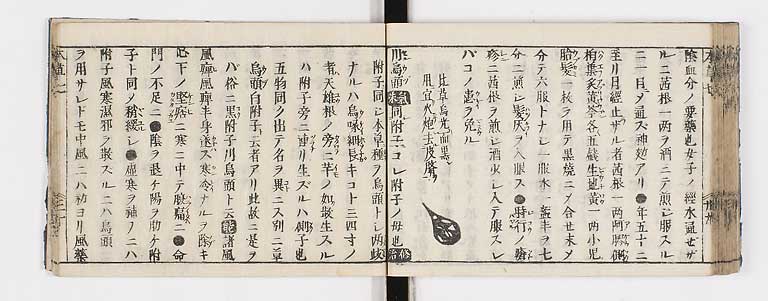 陰血分ノ要藥也女子ノ經水通ゼザ
ルニ茜根一兩ヲ酒ニテ煎シ服スル
一日メ通ス神効アリ●年五十ニ
至リ月經止ザル者茜根一兩阿膠側
柏葉炙黄芩各五戔生地黄一兩小児
胎髪一枚ヲ用テ黒焼ニメ合セ末メ
分テ六服トナシ一服水一盞半ヲ七
分ニ煎シ髪灰ヲ入服ス●時行ノ瘡
疹ニ茜根ヲ煎シ酒少シ入テ服スレ
バコノ患ヲ免ル
此草烏光而黒
用宜火炮去皮臍
川烏頭 氣味同附子コレ附子ノ母也 修治
附子同シ本草種ヲ烏頭トシ兩岐
ナルハ烏喙細長キコト三四寸ノ
者天雄根ノ旁ニ芋ノ如散生スル
ハ附子旁ニ連リ生ズルハ側子也
五物同ク出テ名ヲ異ニス別ニ草
烏頭白附子ト云者アリ此故ニ是ヲ
バ俗ニ黒附子川烏頭ト云 能 諸風
風痺風痺半身遂ズ寒冷ナルヲ除キ
心下ノ堅痞ニ寒ニ中テ腹痛ニ●命
門ノ不足ニ●陰ヲ退ケ陽ヲ助ケ附
子ト同ノ稍緩シ●虚寒ヲ補フニハ
附子風寒濕邪ヲ散スルニハ烏頭
ヲ用サレドモ中風ニハ初ヨリ風藥